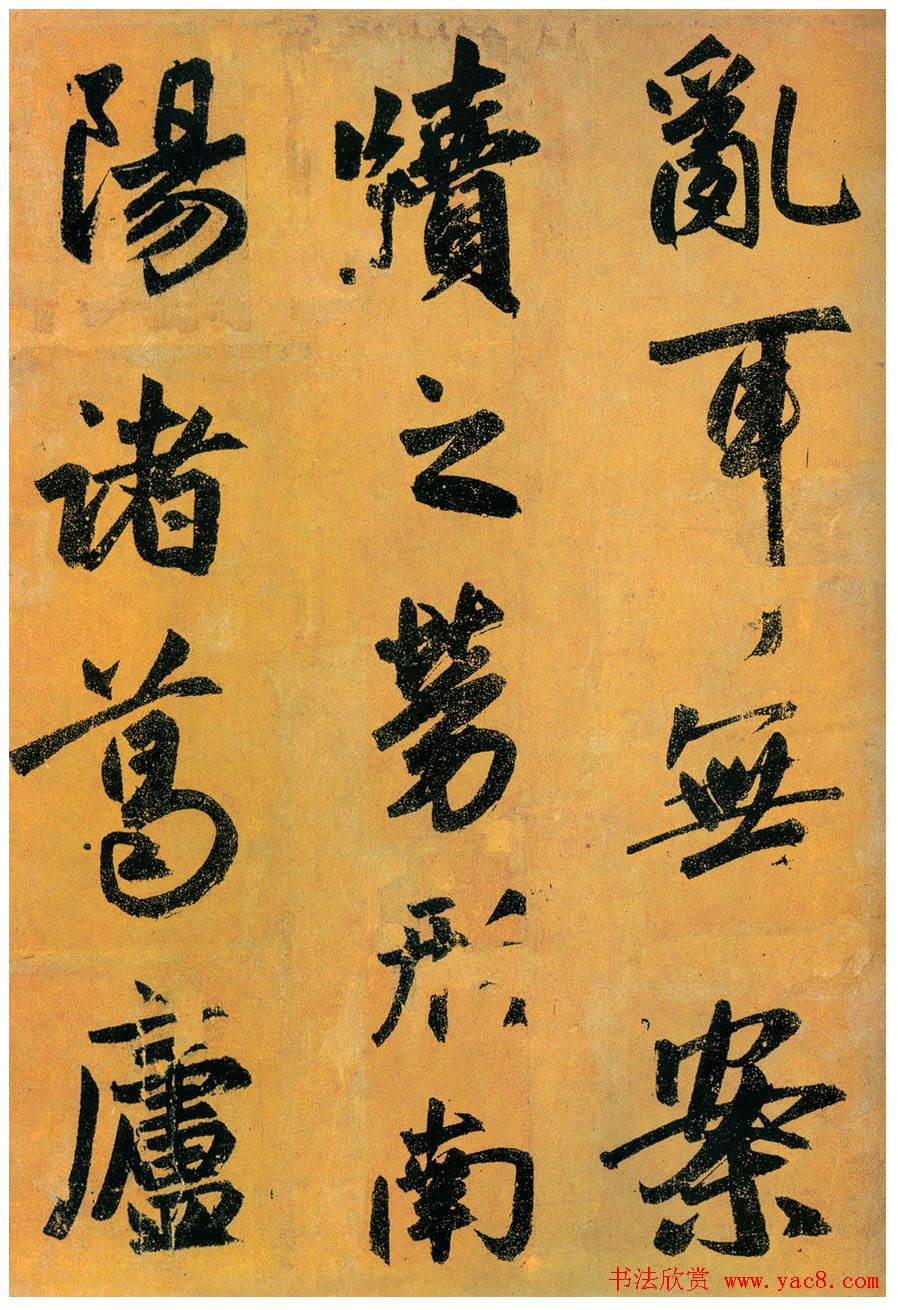 亂耳無案
牘之勞形南
陽諸葛廬
书法欣赏 www.yac8.com